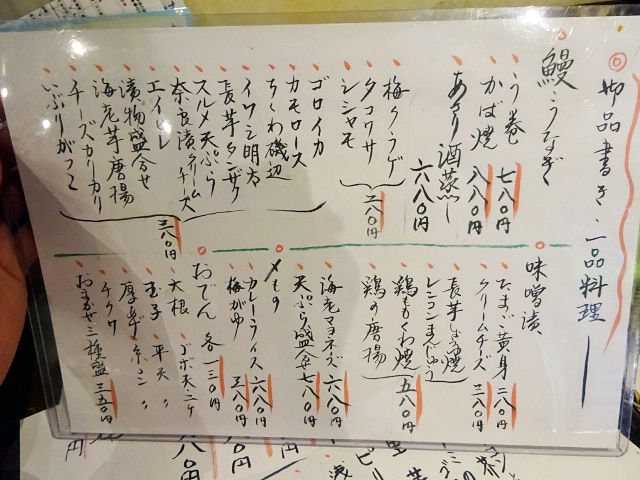 御品書き・一品料理
鰻・うなぎ
う巻 七八〇円
かば焼 八八〇円
あさり酒蒸し 六八〇円
梅クラゲ
タコワサ
シシャモ
三八〇円
ゴロイカ
カモロース
ちくわ磯辺
イワシ明太
長芋タンザク
スルメ天ぷら
奈良漬クリームチーズ
エイヒレ
漬物盛合せ
海老芋唐揚
チーズカリカリ
いぶりがっこ
三八〇円
味噌漬
たまご黄身 三八〇円
クリームチーズ 三八〇円
長芋しょう焼
レンコンまんじゅう
鶏ももくわ焼
鶏の唐揚
五八〇円
海老マヨネーズ 六八〇円
天ぷら盛合せ 七八〇円
〆もの
カレーライス 六八〇円
梅がゆ 三八〇円
おでん 各一三〇円
大根 ゴボ天
玉子 平天
厚あげ
チクワ
おまかせ三種盛 三五〇円